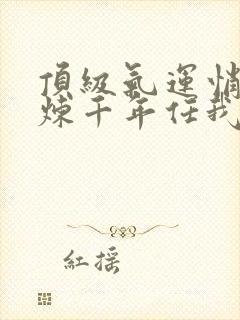 頂級氣運悄
煉千年任我
紅摇